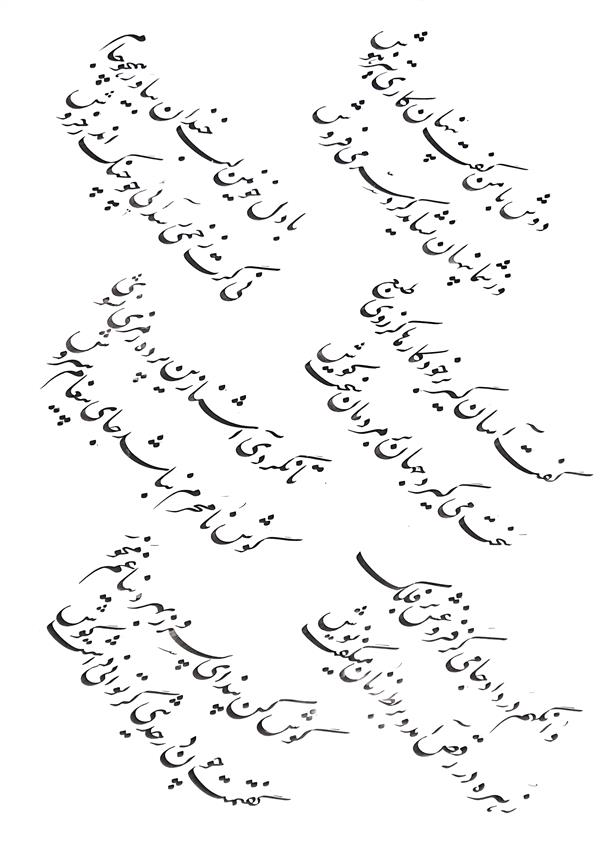 دوش با من گفت پنهان کاردانی تیزهوش
وز شما پنهان نشاید کرد سر می فروش
گفت آسان گیر بر خود کارها کز روی طبع
سخت می گیرد جهان بر مردمان سخت کوش
وانگهم در داد جامی کز فروغش بر فلک
زهره در رقص آمد و بربط زنان میگفت نوش
با دل خونین لب خندان بیاور همچو جام
نی گرت زخمی رسد آئی چو چنگ اندر خروش
تا نگردی آشنا زین پرده رمزی نشنوی
گوش نامحرم نباشد جای پیغام سروش
گوش کن پند ای پسر وز بهر دنیا غم مخور
گفتمت چون در حدیثی گر توانی داشت گوش